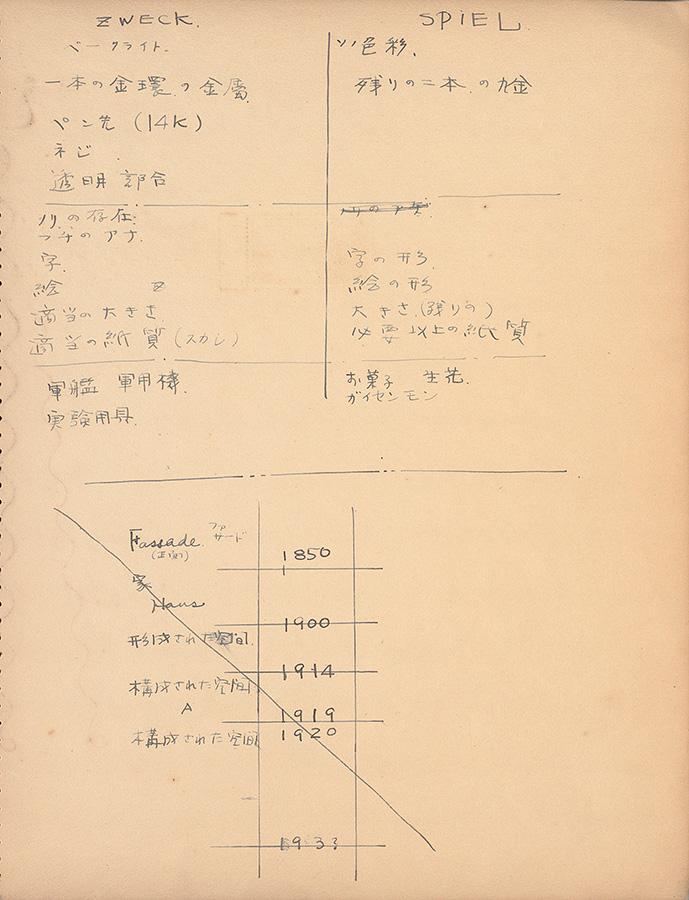 ZWECK.
ベークライト.
一本の金環の金属
ペン先 (14K)
ネジ.
透明部合
ノリの存在
フチのアナ.
字.
絵
適当の大きさ
適当の紙質 (スカシ)
軍艦 軍用機.
実験用具.
SPIEL.
色彩.
残りの二本の九金
字の形
絵の形
大きさ.(残りの)
必要以上の紙質
お菓子 生花.
ガイセンモン
Fassade. ファサード
(正面)
1850
家
Haus
1900
形成された空間.
1914
構成された空間
A
1919
構成された空間
1920
1933